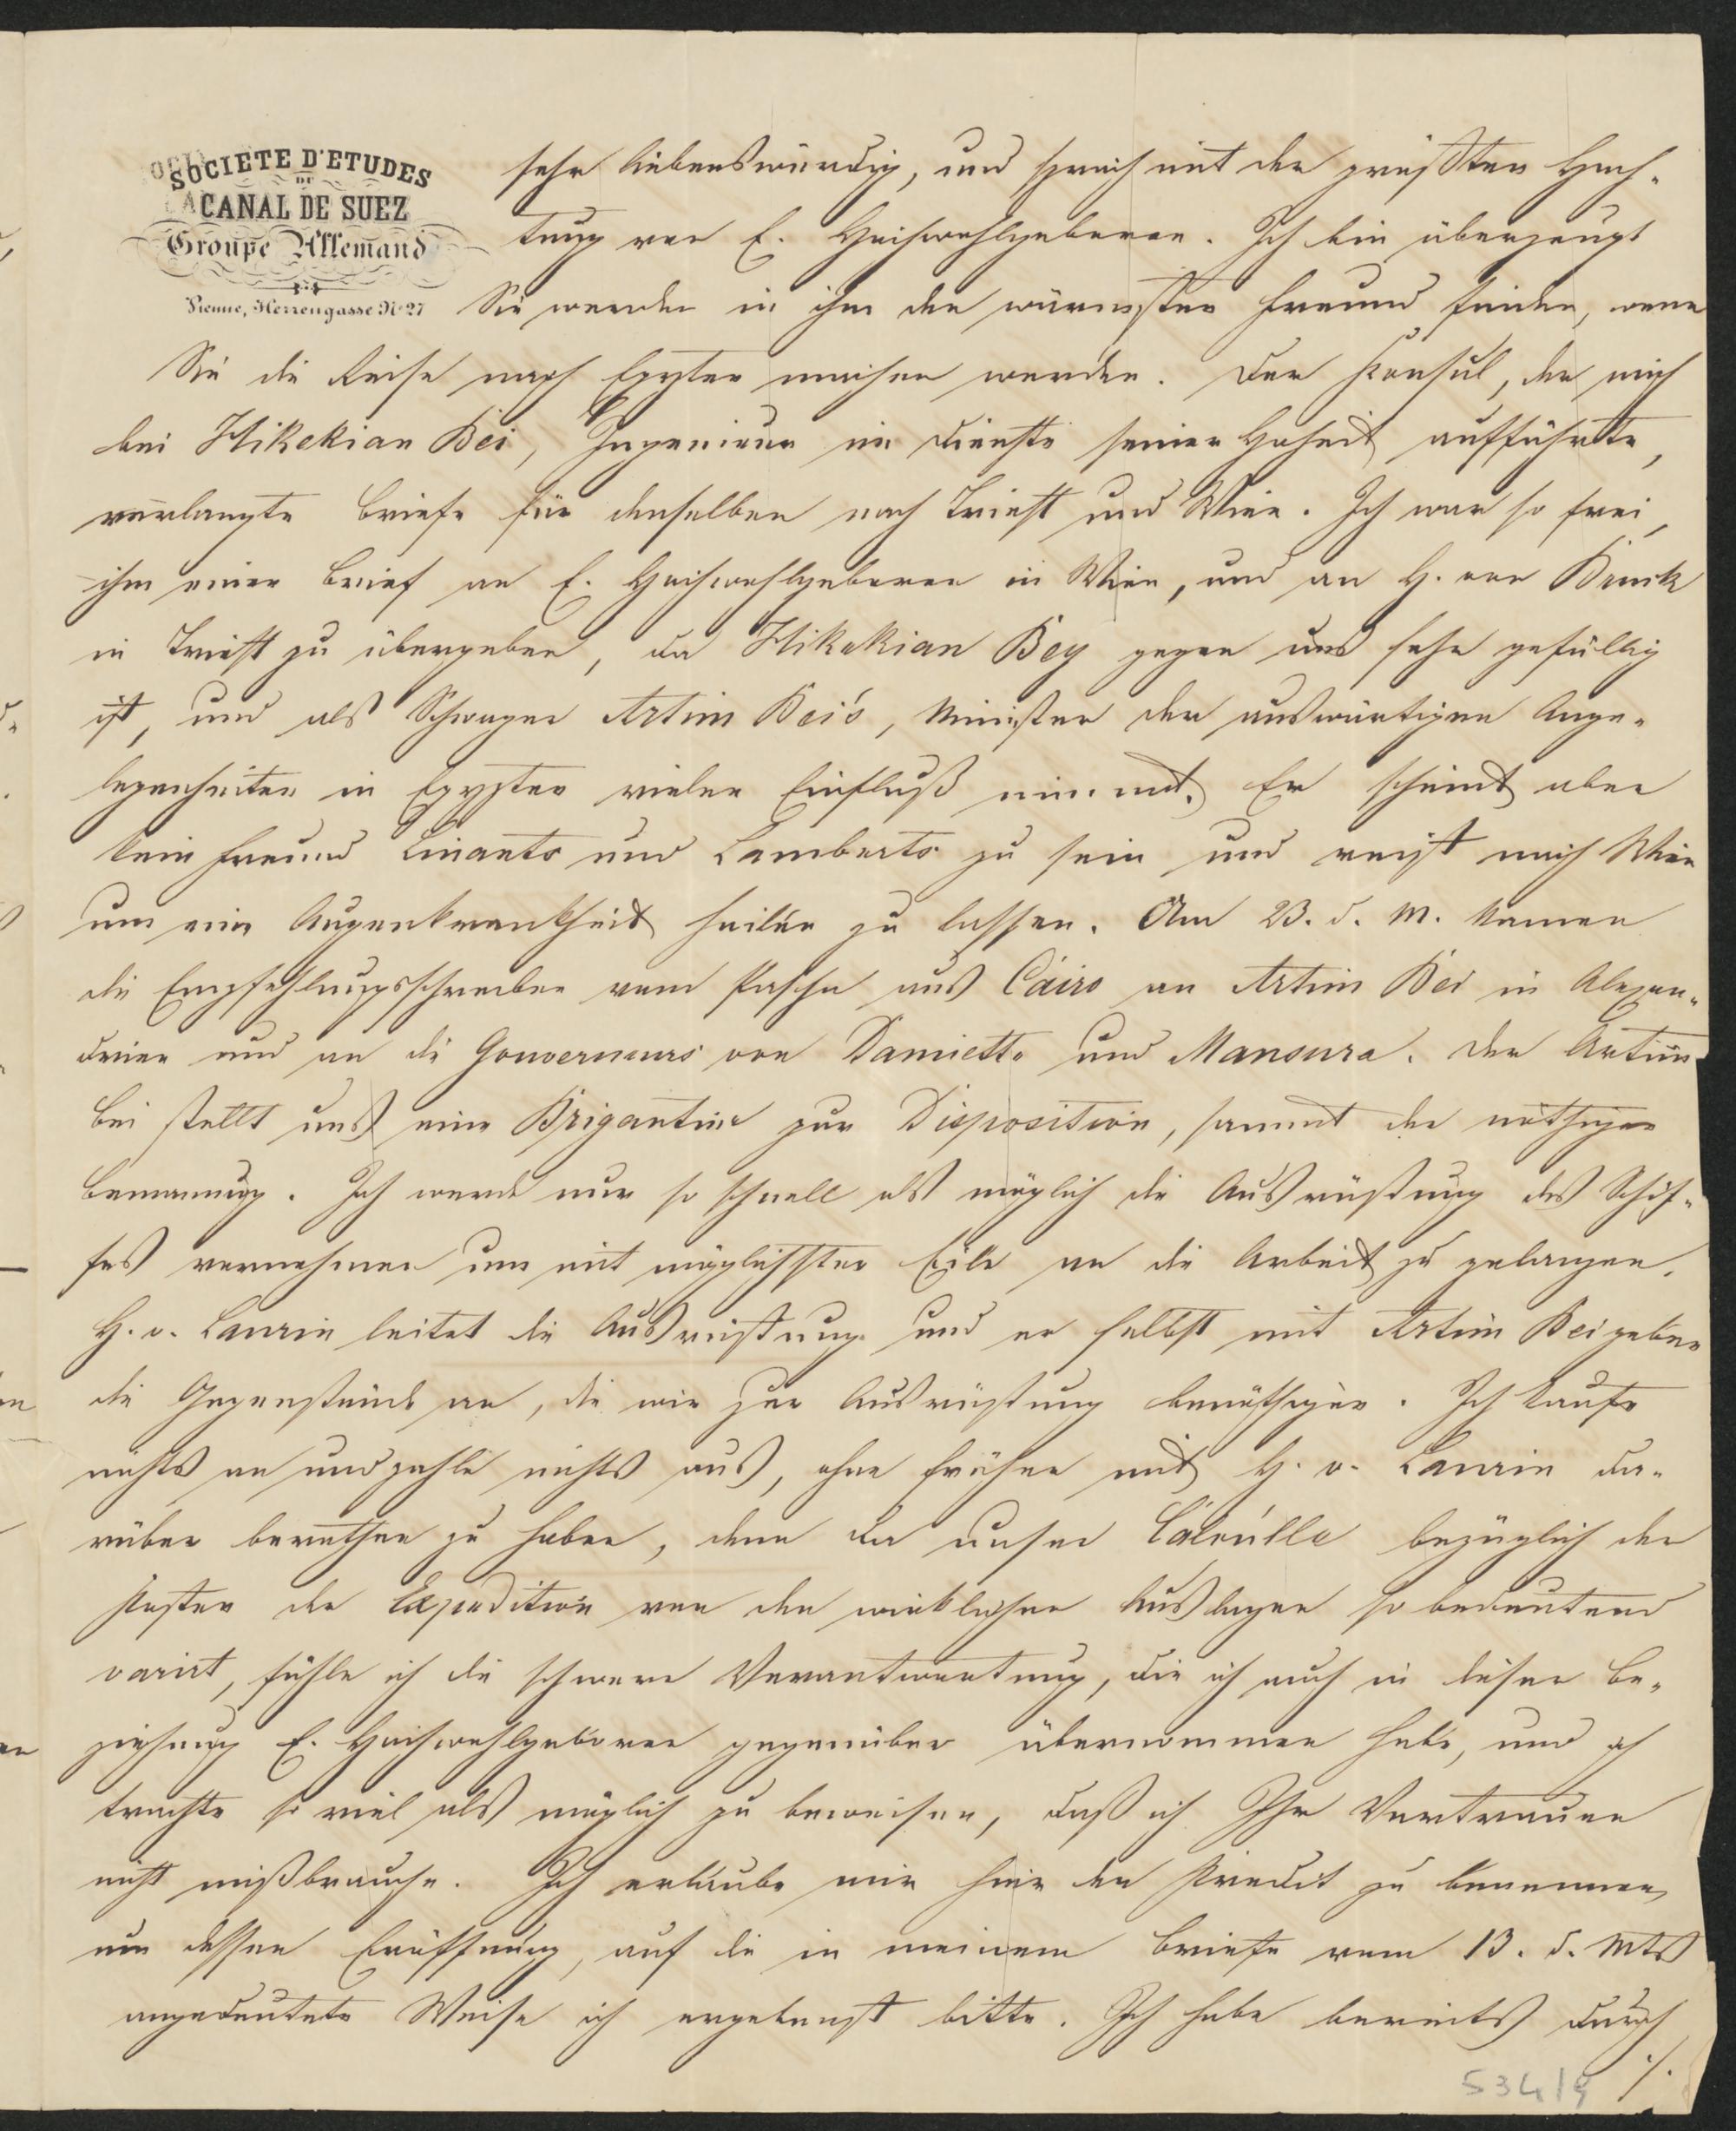 SOCIETE D'ETUDES
DU
CANAL DE SUEZ
Groupe Allemand
Vienne, Herrengasse No 27
sehr liebenswürdig, und sprach mit der größten Hoch-
tung von E. Hochwohlgeboren. Ich bin überzeugt
Sie werden in ihm den wärmsten Freund finden, wenn
Sie die Reise nach Egypten machen werden. Der Konsul, der mich
bei Hikekian Bei, Ingenieur im Dienste seiner Hoheit aufführte,
verlangte Briefe für denselben nach Triest und Wien. Ich war so frei,
ihm einen Brief an E. Hochwohlgeboren in Wien, und an H. von Bruck
in Triest zu übergeben, da Hikekian Bey gegen uns sehr gefällig
ist, und als Schwager Artim Bei's, Minister der auswärtigen Ange-
legenheiten in Egypten vielen Einfluß nimmt. Er scheint aber
kein Freund Linants und Lamberts zu sein und reist nach Wien
um eine Augenkrankheit heilen zu lassen. Am 23. d. M. kamen
die Empfehlungsschreiben vom Pascha aus Cairo an Artim Bei in Alexan-
drien und an die Gouverneurs von Damiette und Mansura. Der Artim
Bei stellt uns eine Brigantine zur Disposition, sammt der nöthigen
Bemannung. Ich werde nur so schnell als möglich die Ausrüstung des Schif-
fes vornehmen um mit möglichster Eile an die Arbeit zu gelangen.
H. v. Laurin leitet die Ausrüstung und er selbst mit Artim Bei geben
die Gegenstände an, die wir zur Ausrüstung benöthigen. Ich kaufe
nichts an und zahle nichts aus, ohne früher mit H. v. Laurin da-
rüber berathen zu haben, denn da unser Calculle bezüglich der
Kosten der Expedition von den wirklichen Auslagen so bedeutend
varirt, fühle ich die schwere Verantwortung, die ich auch in dieser Be-
ziehung E. Hochwohlgeboren gegenüber übernommen habe, und ich
trachte so viel als möglich zu beweisen, daß ich Ihr Vertrauen
nicht mißbrauche. Ich erlaube mir hier den Kredit zu benennen,
um dessen Eröffnung, auf die in meinem Briefe vom 13. d. Mts
angedeutete Weise ich ergebenst bitte. Ich habe bereits durch
./.
534/9